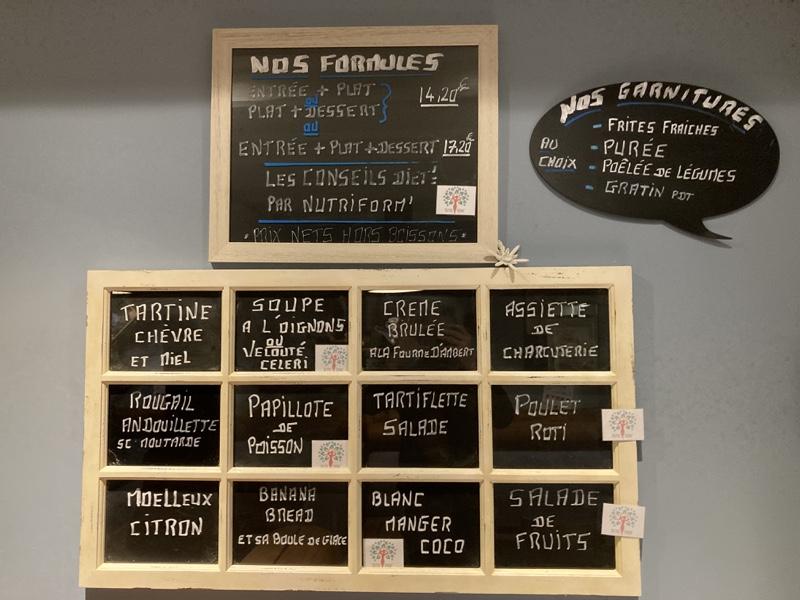 NOS FORMULES
ENTRÉE + PLAT
OU
PLAT + DESSERT
14,20€
OU
ENTRÉE + PLAT + DESSERT 17,20€
LES CONSEILS DIET'
PAR NUTRIFORM'
* PRIX NETS HORS BOISSONS *
NOS GARNITURES
AU
CHOIX
- FRITES FRAICHES
- PURÉE
- POÊLÉE DE LÉGUMES
- GRATIN PDT
TARTINE
CHÈVRE
ET MIEL
SOUPE
A L'OIGNONS
OU
VELOUTÉ
CELERI
CREME
BRULÉE
A LA FOURME D'AMBERT
ASSIETTE
DE
CHARCUTERIE
ROUGAIL
ANDOUILLETTE
SC MOUTARDE
PAPILLOTE
DE
POISSON
TARTIFLETTE
SALADE
POULET
ROTI
MOELLEUX
CITRON
BANANA
BREAD
ET SA BOULE DE GLACE
BLANC
MANGER
COCO
SALADE
DE
FRUITS